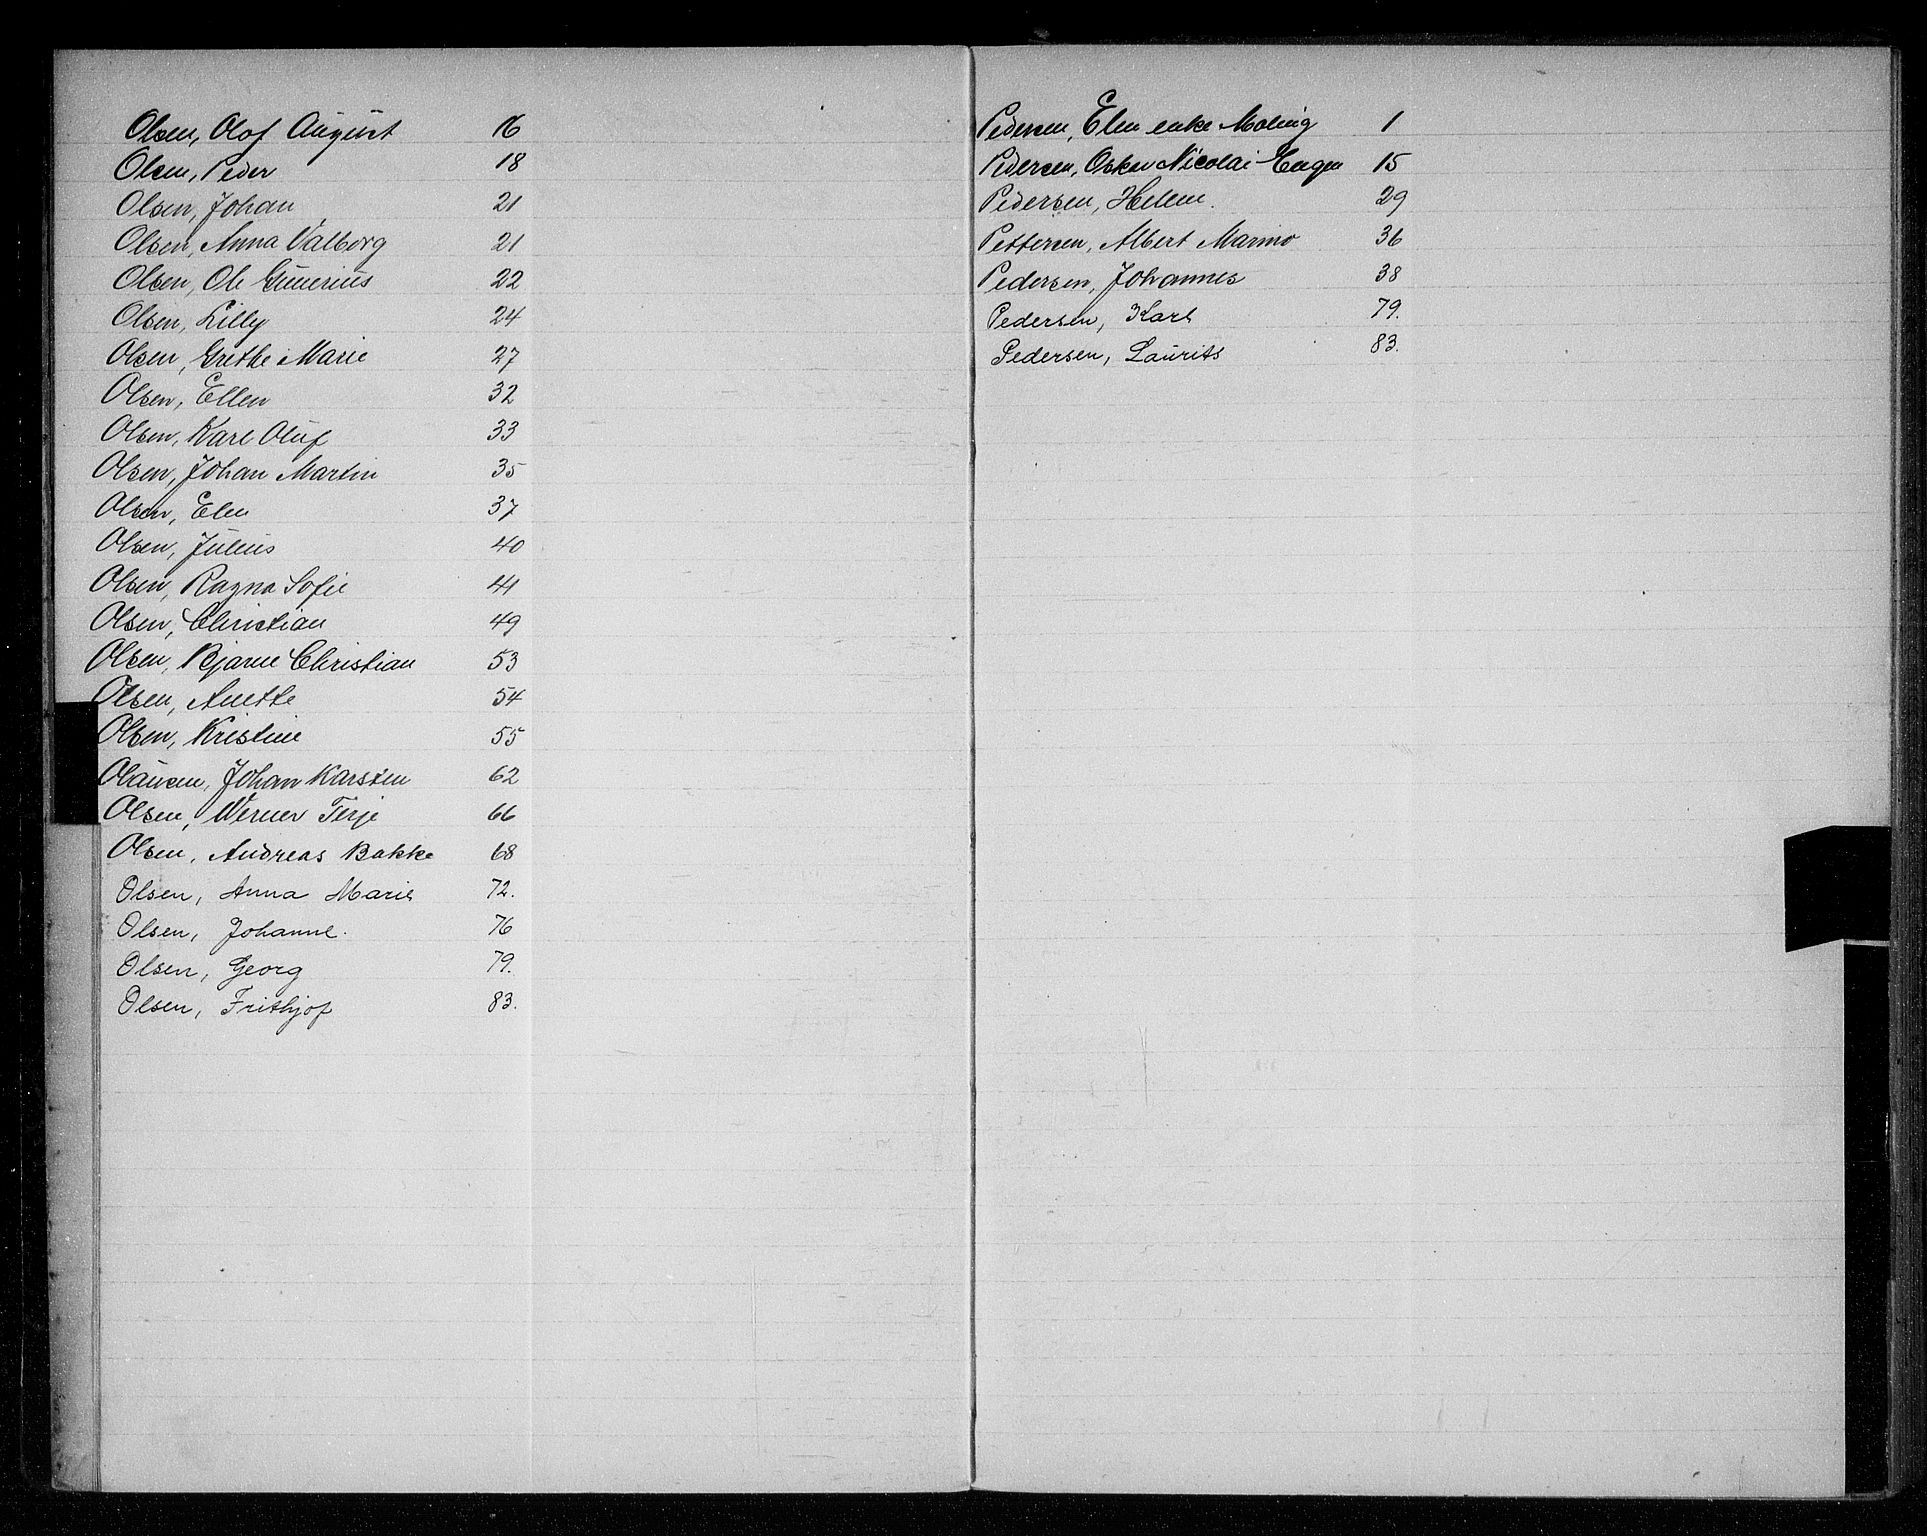 Olsen, Olof August 16
Olsen, Peder 18
Olsen, Johan 21
Olsen, Anna Valborg 21
Olsen, Ole Gunerius 22
Olsen, Lilly 24
Olsen, Grethe Marie 27
Olsen, Ellen 32
Olsen, Karl Oluf 33
Olsen, Johan Martin 35
Olsen, Elen 37
Olsen, Julius 40
Olsen, Ragna Sofie 41
Olsen, Christian 49
Olsen, Bjarne Christian 53
Olsen, Anette 54
Olsen, Kristine 55
Olausen, Johan Karsten 62
Olsen, Werner Terje 66
Olsen, Andreas Bakke 68
Olsen, Anna Marie 72.
Olsen, Johanne. 76
Olsen, Georg 79.
Olsen, Frithjof 83.
Pedersen, Elen enke Moling 1
Pedersen, Oskar Nicolai 15
Pedersen, Helene. 29
Pettersen, Albert Marino 36
Pedersen, Johannes 38
Pedersen, Karl 79.
Pedersen, Laurits 83.